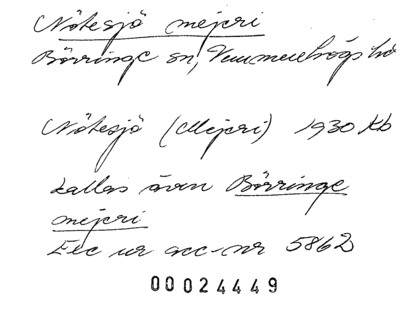 Nötesjö mejeri
Börringe sn, Vemmenhögs hd
Nötesjö (Mejeri) 1930 Kb
kallas även Börringe
mejeri
Exc ur acc-nr 5862
00024449